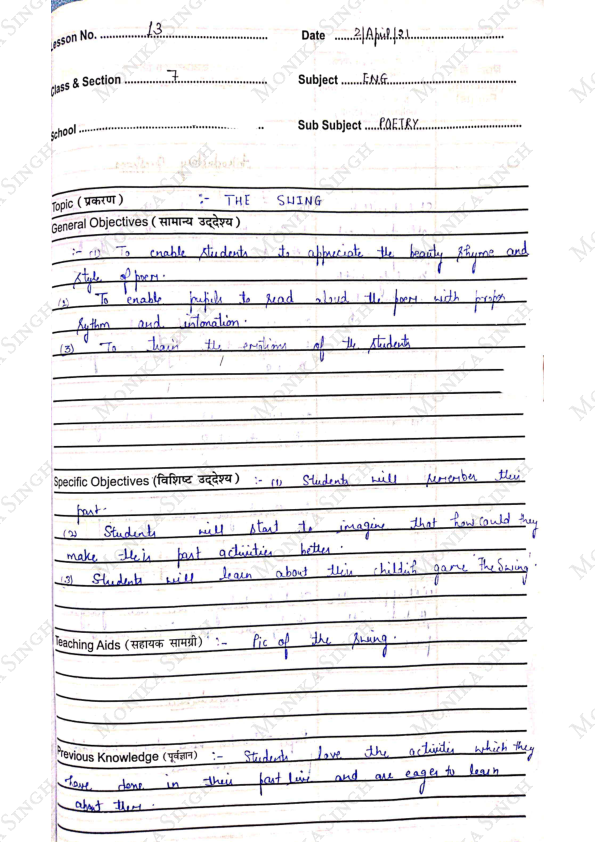 Lesson No. 13 Date 2/April/21
Class & Section 7 Subject ENG
School Sub Subject POETRY
Topic ( प्रकरण ) :- THE SWING
General Objectives ( सामान्य उद्देश्य )
:- (1) To enable students to appreciate the beauty rhyme and
style of poem.
(2) To enable pupils to read aloud the poem with proper
rythm and intonation.
(3) To train the emotions of the students
Specific Objectives (विशिष्ट उद्देश्य ) :- (1) Students will remember their
past.
(2) Students will start to imagine that how could they
make their past activities better.
(3) Students will learn about their childish game 'The Swing'.
Teaching Aids (सहायक सामग्री) :- Pic of the swing.
Previous Knowledge (पूर्वज्ञान) :- Students love the activities which they
have done in their past live and are eager to learn
about them.
MONIKA SINGH